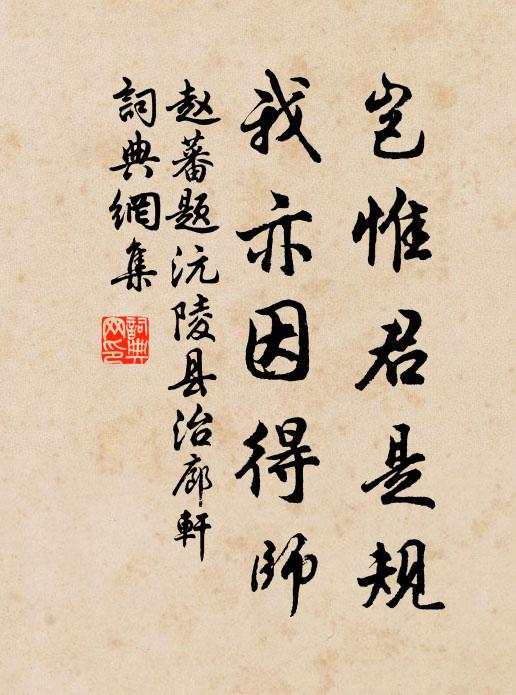 岂惟君是规
我亦因得师
赵蕃题沅陵县治廊轩
詞典網集
詞典網印